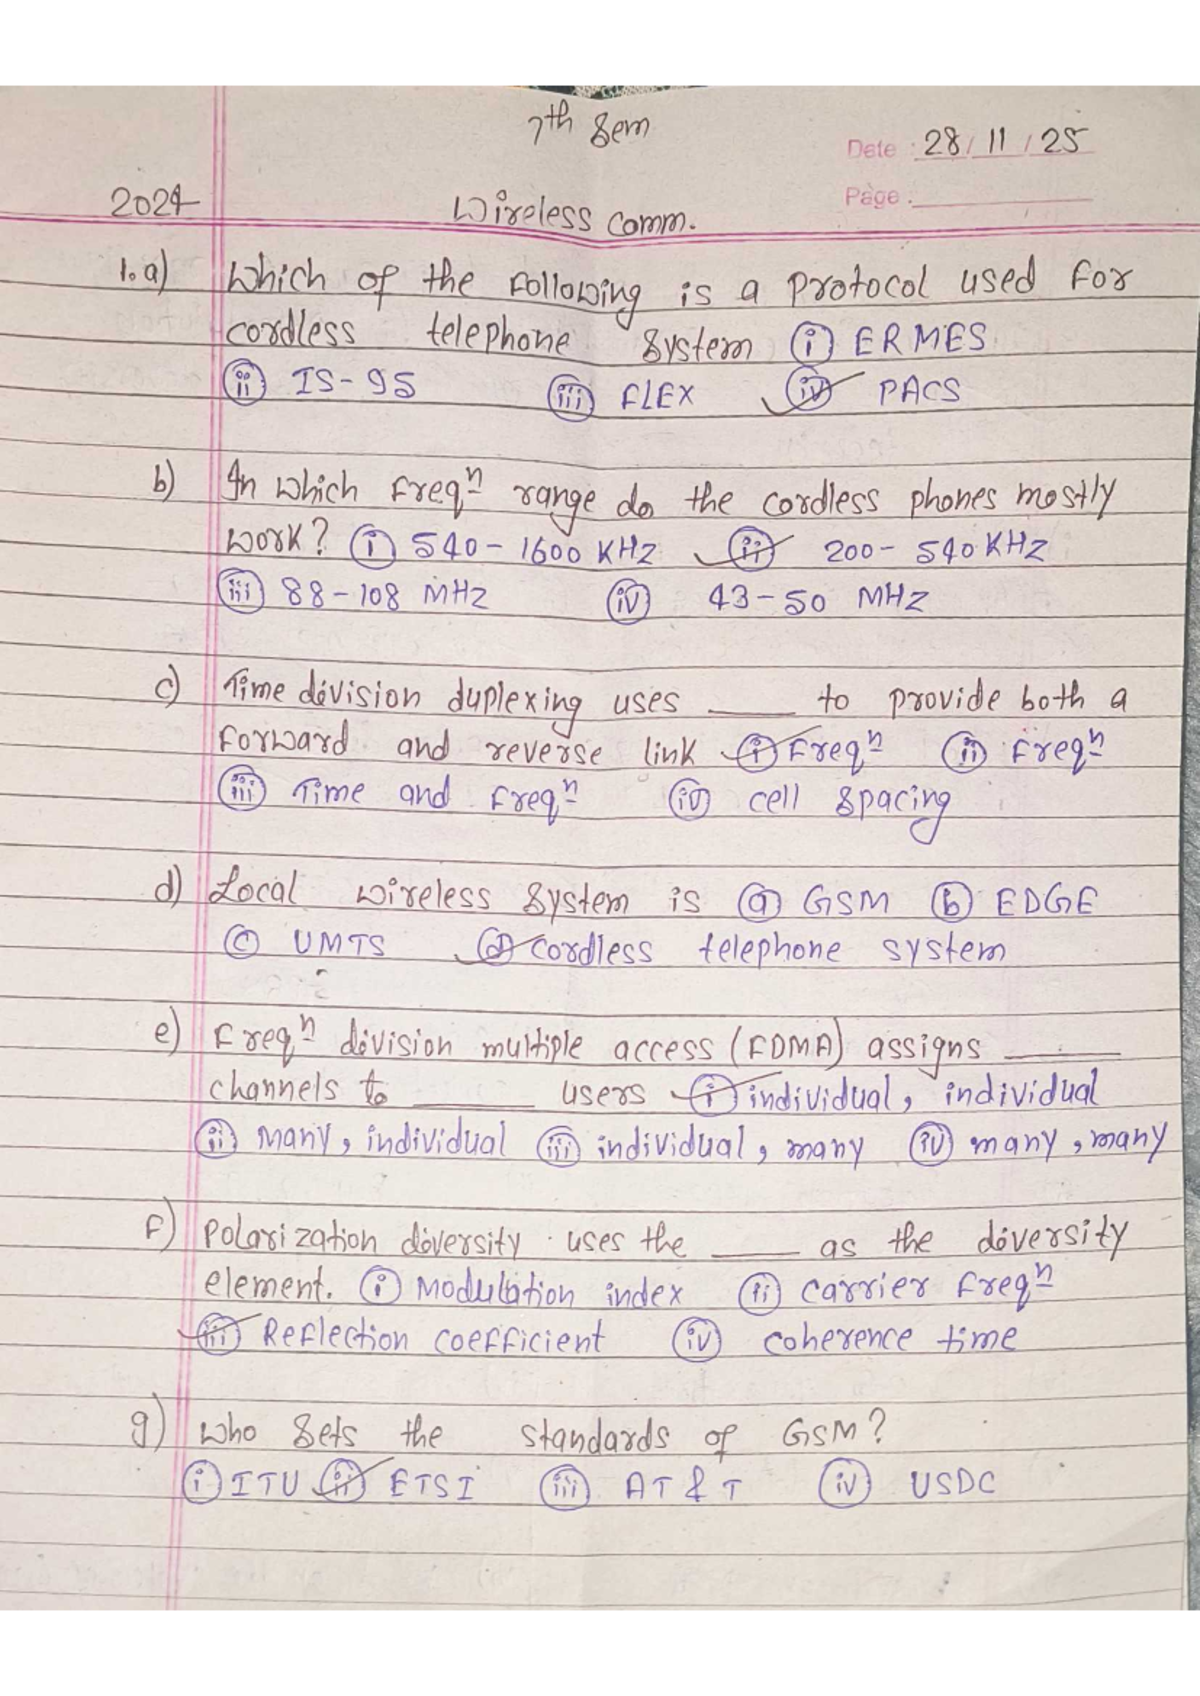 7th Sem
Date : 28/ 11 / 25
Page :
2024
Wireless comm.
1. a) Which of the following is a protocol used for
cordless telephone system (i) ERMES
(ii) IS-95 (iii) FLEX (iv) PACS
b) In which freqⁿ range do the cordless phones mostly
work? (i) 540-1600 KHz (ii) 200-540 KHz
(iii) 88-108 MHz (iv) 43-50 MHz
c) Time division duplexing uses ____ to provide both a
forward and reverse link (i) Freqⁿ (ii) Freqⁿ
(iii) Time and freqⁿ (iv) cell spacing
d) Local wireless system is (a) GSM (b) EDGE
(c) UMTS (d) cordless telephone system
e) Freqⁿ division multiple access (FDMA) assigns ____
channels to ____ users (i) individual, individual
(ii) many, individual (iii) individual, many (iv) many, many
f) Polarization diversity uses the ____ as the diversity
element. (i) Modulation index (ii) carrier freqⁿ
(iii) Reflection coefficient (iv) coherence time
g) Who sets the standards of GSM?
(i) ITU (ii) ETSI (iii) AT & T (iv) USDC